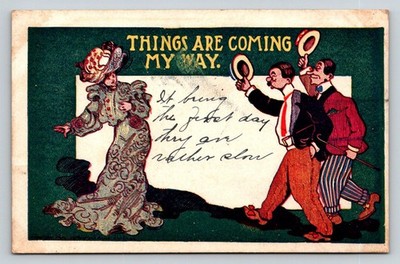 THINGS ARE COMING
MY WAY.
It being
the first day
they are
rather slow